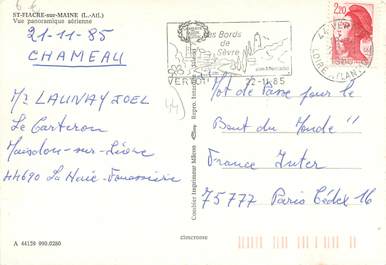 ST-FIACRE-sur-MAINE (L.-Atl.)
Vue panoramique aérienne
21-11-85
CHAMEAU
Mr LAUNAY JOEL
Le Carteron
Maisdon-sur-Sèvre
44690 La Haie-Fouassière
A 44159 990.0280
44
Combier Imprimeur Mâcon
cimcrome
Les Bords
de
Sèvre
22-11-85
44 VER
LOIRE
2,20
Mot de Passe pour le
Bout du Monde "
France Inter
75777 Paris Cédex 16